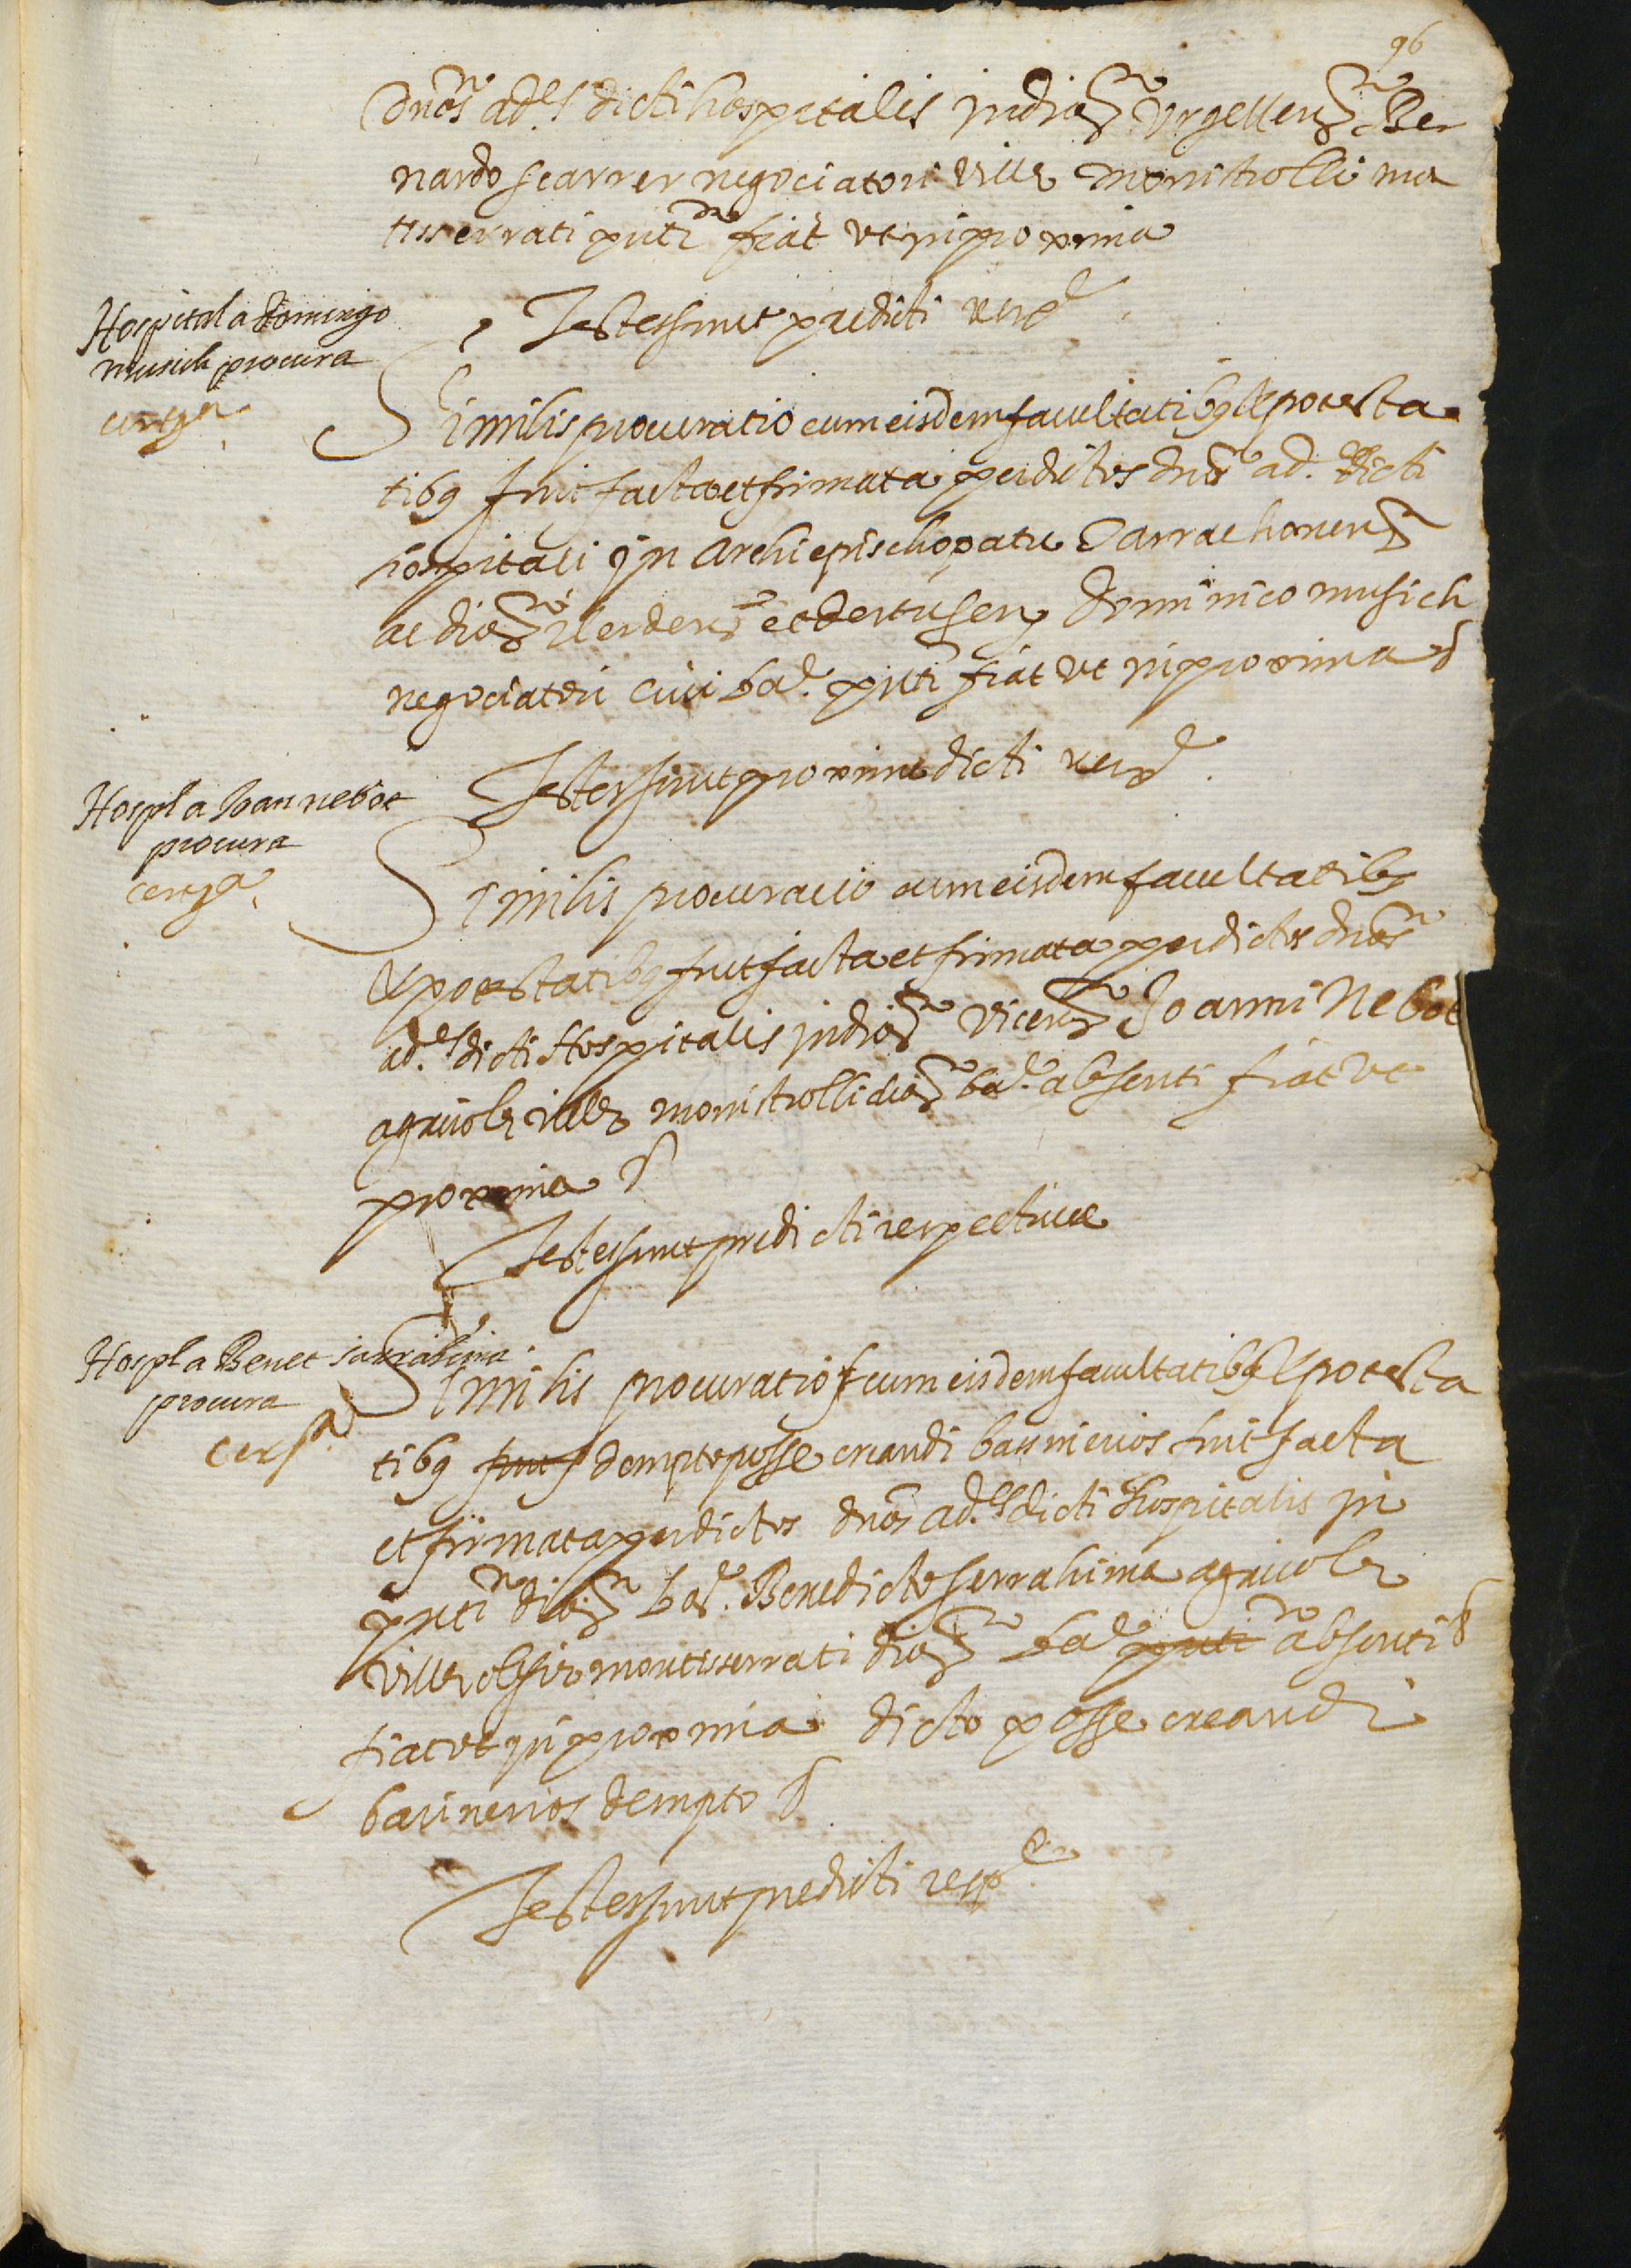 96
dnos ad.es dicti hospitalis in dioc. Urgellen. Ber
nardo scarrer negociatori ville monistrolli mon
tisserrati pnti fiat ut in proxima
Testes sunt predicti resp.e
Hospital a Domingo
musich procura
Similis procuratio cum eisdem facultatibq & potesta
tibq fuit facta et firmata per dictos dnos ad. dicti
hospitali in Archiepischopatu Tarrachonen.
ac dioc. Ilerden. et dertusen. dominico musich
negociatori civi bar. pnti fiat ut in proxima
Testes sunt proxime dicti resp.e
Hospl a Joan nebot
procura
Similis procuracio cum eisdem facultatibq
& potestatibq fuit facta et firmata per dictos dnos
ad.es dicti Hospitalis in dioc. Vicen. Joanni Nebot
agricole ville monistrolli dioc. bar. absenti fiat ut
proxima
Testes sunt predicti respective
Hospl a Benet sarrahima
procura
Similis procuratio cum eisdem facultatibq & potesta
tibq fuit dempto posse creandi bacinerios fuit facta
et firmata per dictos dnos ad.es dicti hospitalis in
pnti dioc. bar. Benedicto serrahima agricole
ville olesie montisserrati dioc. bar. pnti absenti
fiat ut in proxima dicto posse creandi
bacinerios dempto
Testes sunt predicti resp.e